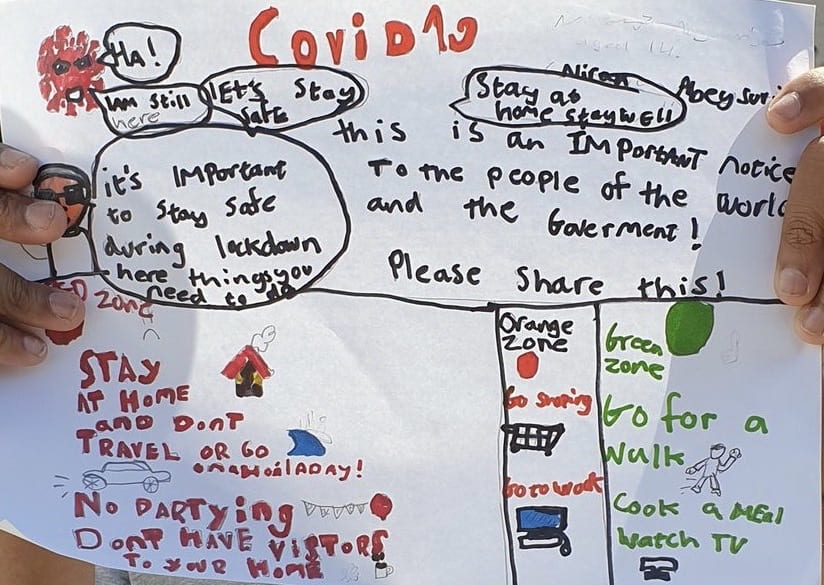 Covid 19
HA!
Im Still
here
LEt's Stay
safe
Stay at
home stay wEll
Niren Abeysuri
this is an IMPORTANT notice
To the people of the world
and the Goverment!
Please Share this!
it's IMPortant
to Stay Safe
during lockdown
here things you
need to do
RED zone
STAY
AT HOME
AND DONT
TRAVEL OR GO
ON A HOILADAY!
NO PARTYING
DONT HAVE VISTORS
TO YOUR HOME
Orange
ZONE
Go Shoping
Go to Work
Green
zone
Go for a
Walk
Cook a MEAl
Watch TV